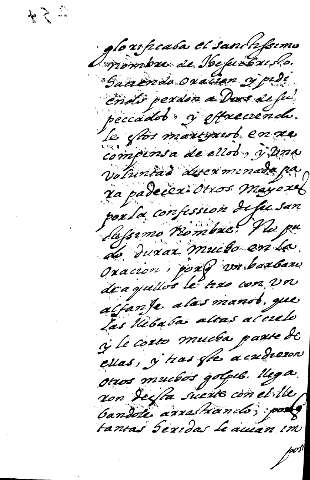 254
glorificaba el sanctissimo
nombre de Jhesuchristo.
haciendo oracion y pidi
endo perdon a Dios de sus
peccados, y offreciendo
le estos martyrios en re
compensa de ellos, y una
voluntad determinada pa
ra padecer otros mayores
por la confession de su san
tissimo Nombre. No pu
do durar mucho en la
oracion; porq un barbaro
de aquellos le tiro con un
alfanje a las manos, que
las llebaba altas al cielo
y le corto mucha parte de
ellas, y tras este acudieron
otros muchos golpes. llega
ron desta suerte con el lle
bandole arrastrando; porq
tantas heridas le avian im
pos